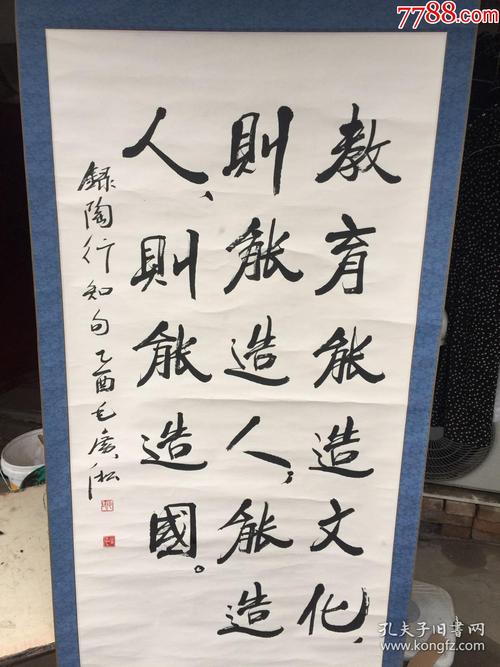 教育能造文化，
則能造人；能造
人，則能造國。
錄陶行知句 乙酉毛廣淞
7788.com
孔夫子旧書网
www.kongfz.com